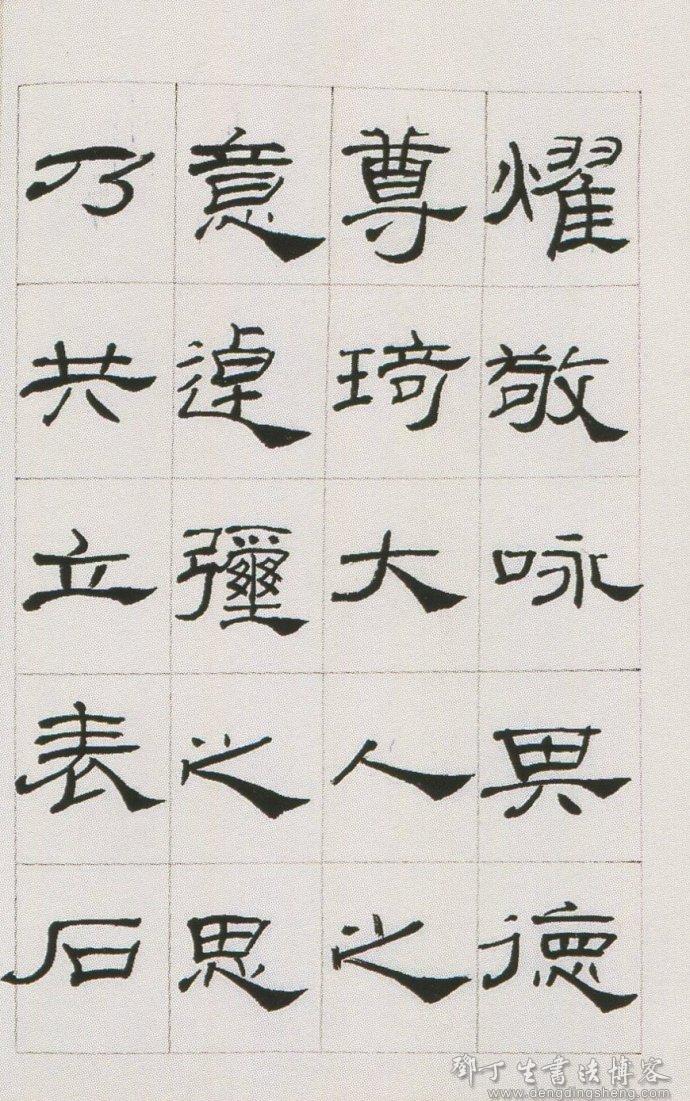 耀敬咏其德
尊琦大人之
意逴彌之思
乃共立表石
鄧丁生書法博客
www.dengdingsheng.com